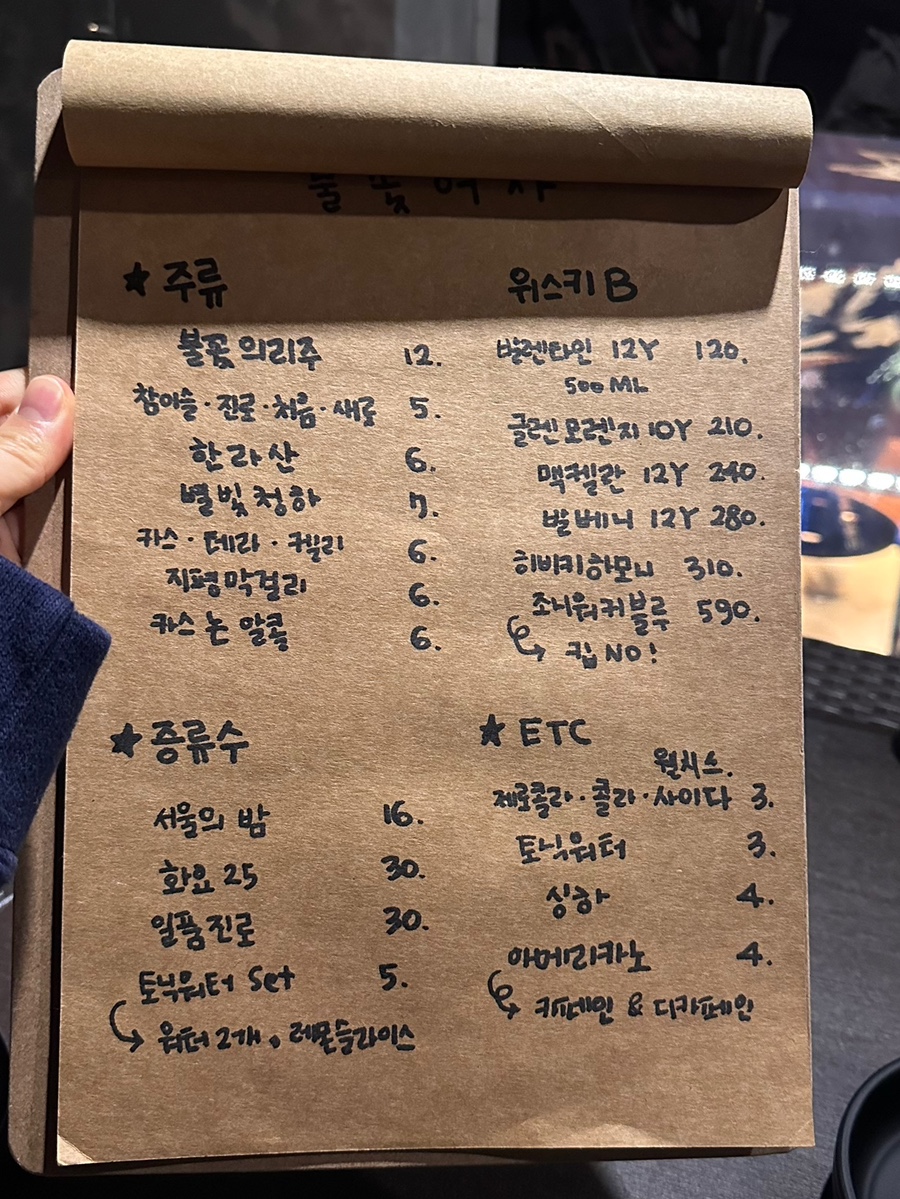 불꽃여자
★ 주류
불꽃 의리주 12.
참이슬·진로·처음·새로 5.
한라산 6.
별빛청하 7.
카스·테라·켈리 6.
지평막걸리 6.
카스 논 알콜 6.
★ 증류수
서울의 밤 16.
화요 25 30.
일품진로 30.
토닉워터 Set 5.
워터 2개, 레몬슬라이스
위스키 B
발렌타인 12Y 120.
500ML
글렌모렌지 10Y 210.
맥켈란 12Y 240.
발베니 12Y 280.
히비키하모니 310.
조니워커블루 590.
킵 NO!
★ ETC
웰치스.
제로콜라·콜라·사이다 3.
토닉워터 3.
싱하 4.
아메리카노 4.
카페인 & 디카페인